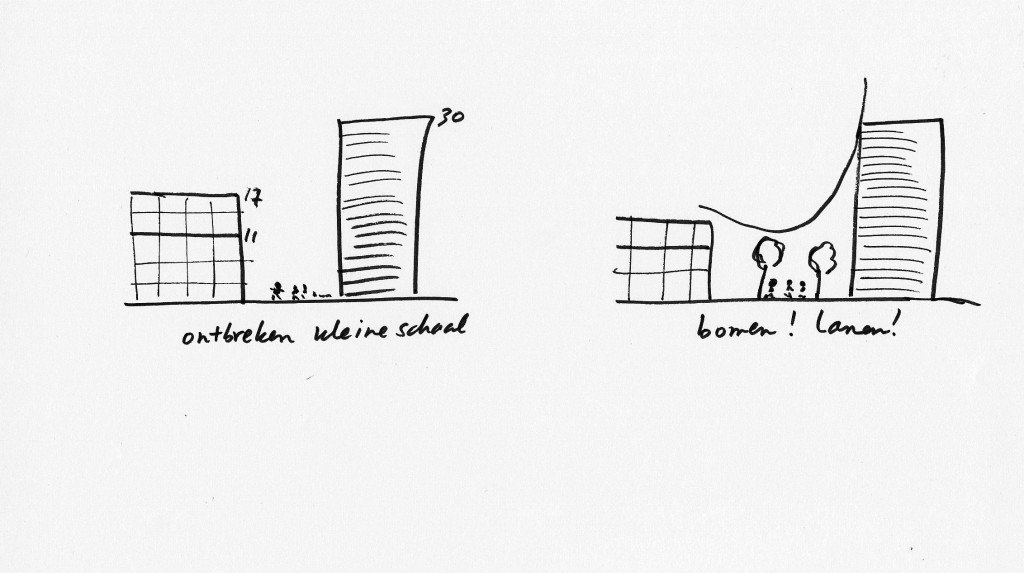 30
17
11
ontbreken kleine schaal
bomen! lanen!